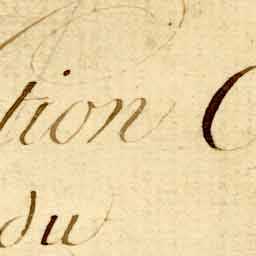 tion C
du